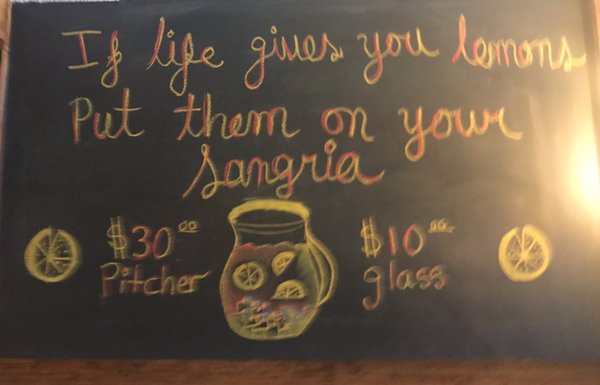 If life gives you lemons
Put them on your
sangria
$30.00
Pitcher
$10.00
glass